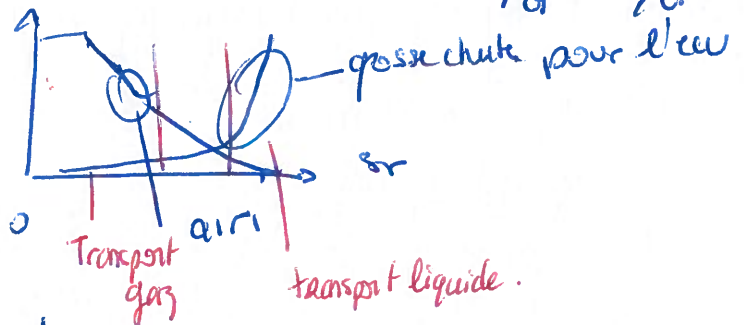 grosse chute pour l'eau
Sr
0
air
Transport
gaz
transport liquide.